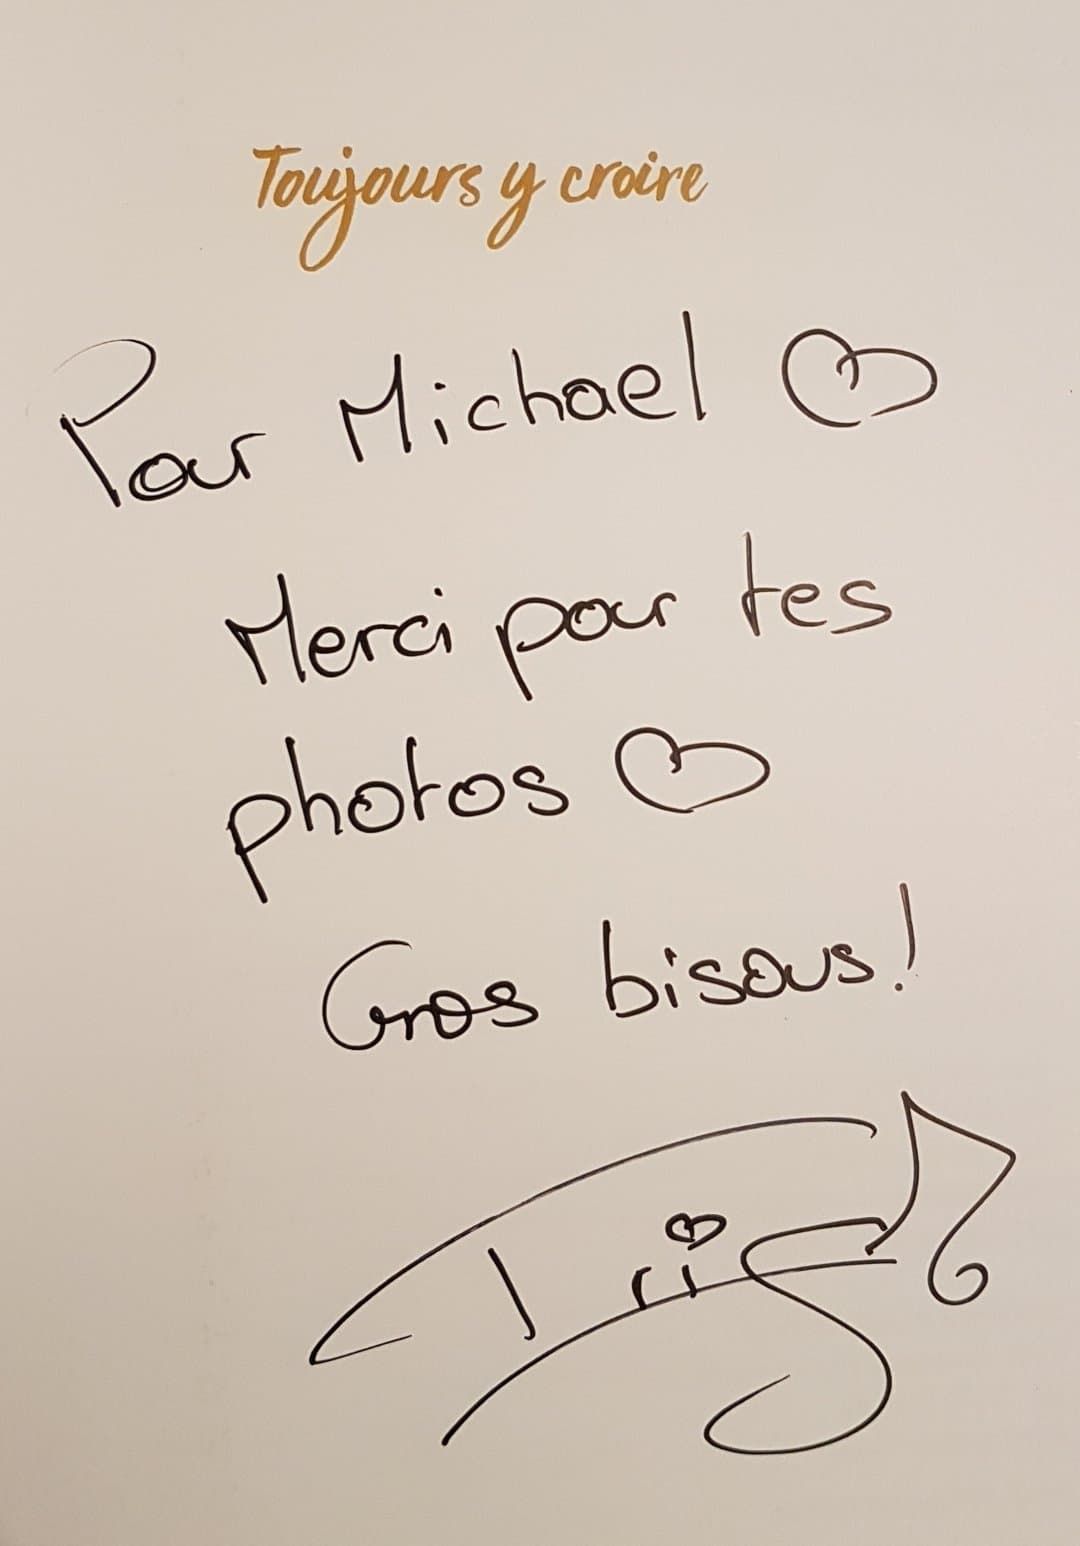 Toujours y croire
Pour Michael
Merci pour tes
photos
Gros bisous!
Iris